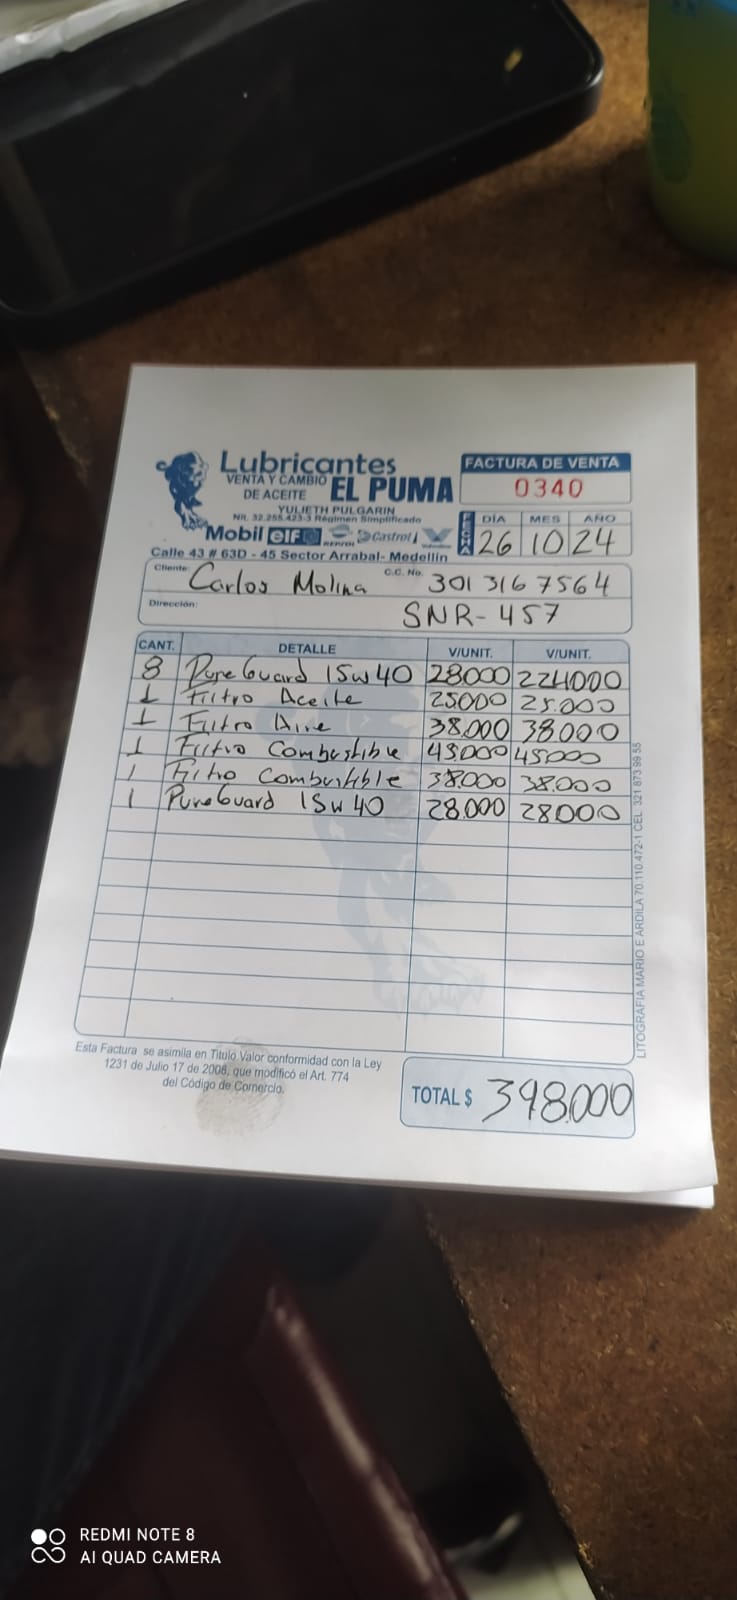 Lubricantes
VENTA Y CAMBIO
DE ACEITE EL PUMA
YULIETH PULGARIN
Nit. 32.255.423-3 Régimen Simplificado
Mobil elf REPSOL Castrol Valvoline
Calle 43 # 63D - 45 Sector Arrabal- Medellín
FACTURA DE VENTA
0340
FECHA DÍA MES AÑO
26 10 24
Cliente: Carlos Molina C.C. No. 301 316 7564
Dirección: SNR-457
CANT. DETALLE V/UNIT. V/UNIT.
8 PureGuard 15w40 28000 224000
1 Filtro Aceite 25000 25.000
1 Filtro Aire 38.000 38.000
1 Filtro Combustible 45.000 45000
1 Filtro Combustible 38.000 38.000
1 PureGuard 15w40 28.000 28000
Esta Factura se asimila en Titulo Valor conformidad con la Ley
1231 de Julio 17 de 2008, que modificó el Art. 774
del Código de Comercio.
TOTAL $ 398.000
LITOGRAFIA MARIO E ARDILA 70.110.472-1 CEL. 321 873 99 55
REDMI NOTE 8
AI QUAD CAMERA